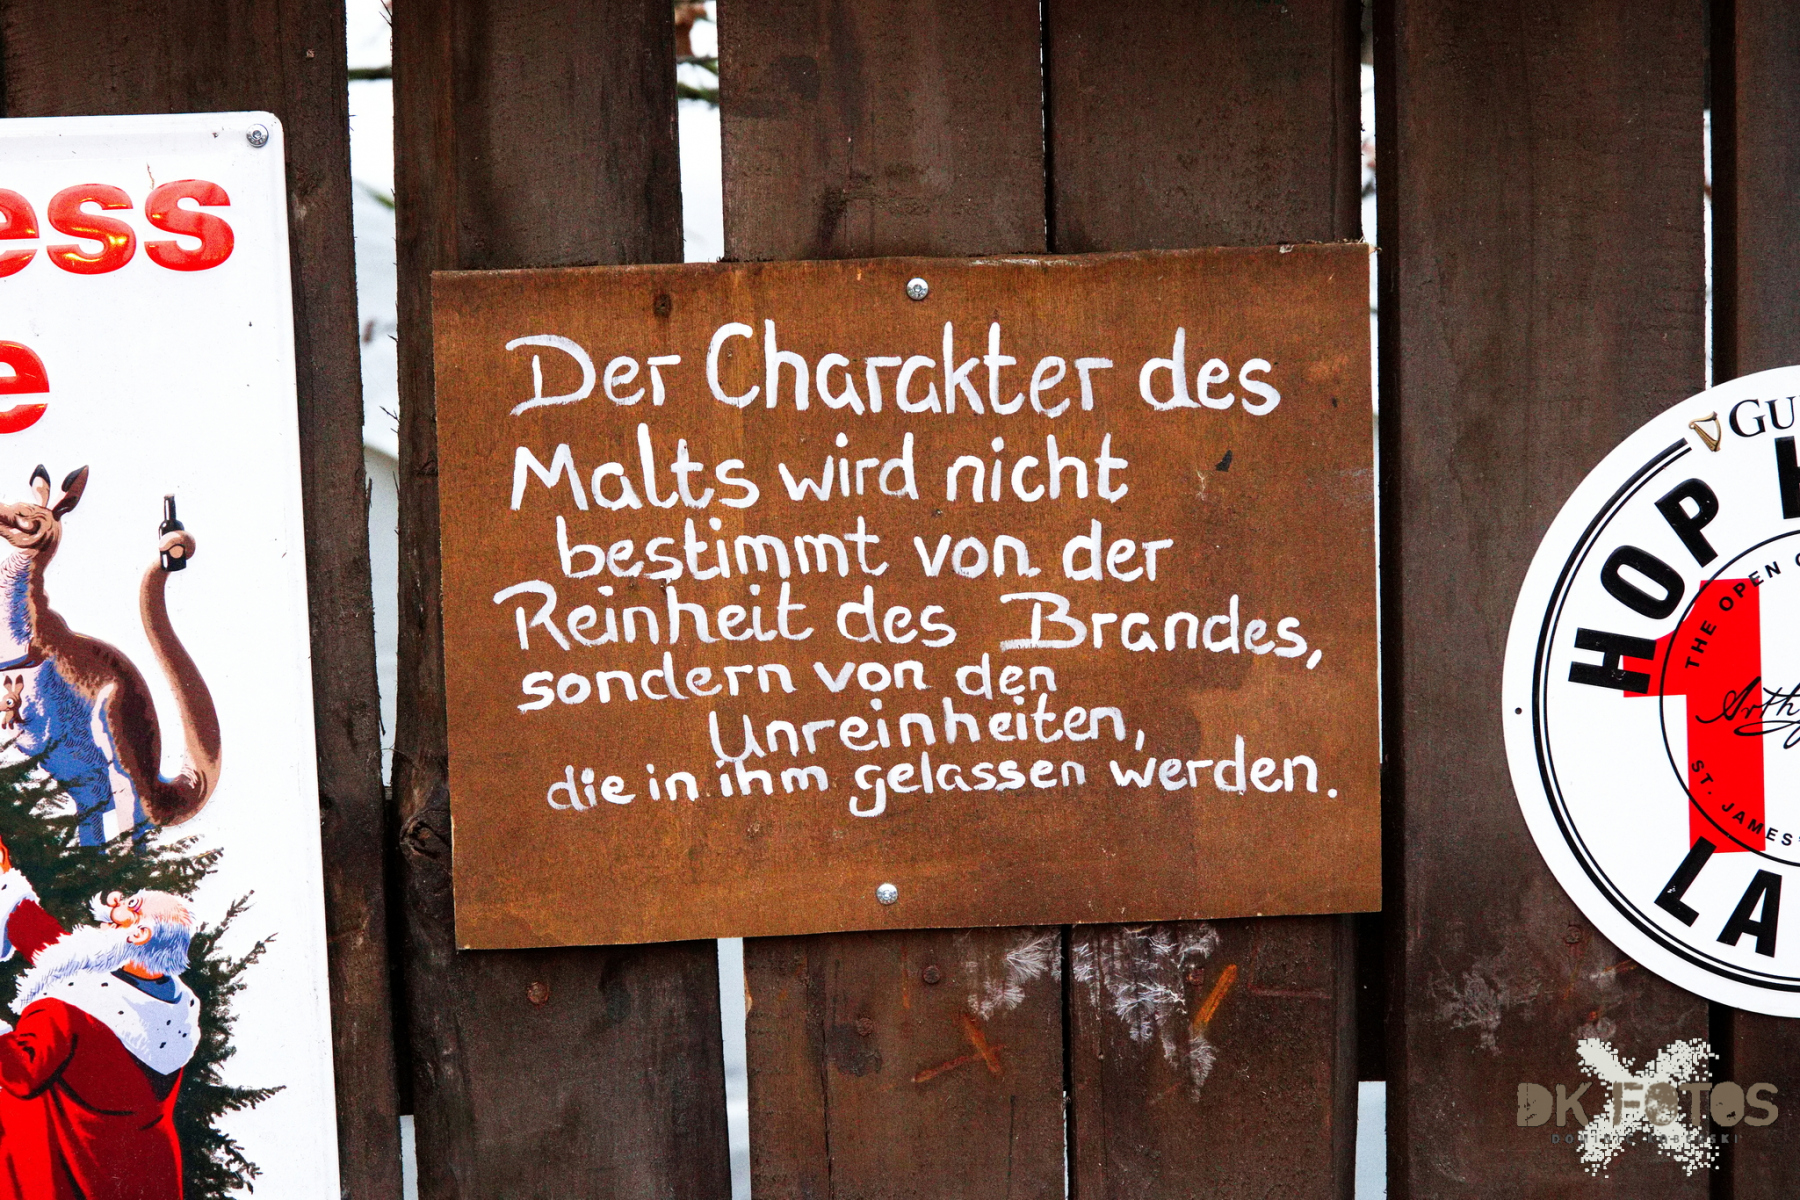 ess
e
Der Charakter des
Malts wird nicht
bestimmt von der
Reinheit des Brandes,
sondern von den
Unreinheiten,
die in ihm gelassen werden.
HOP
THE OPEN
ST. JAMES'
LA
DK FOTOS